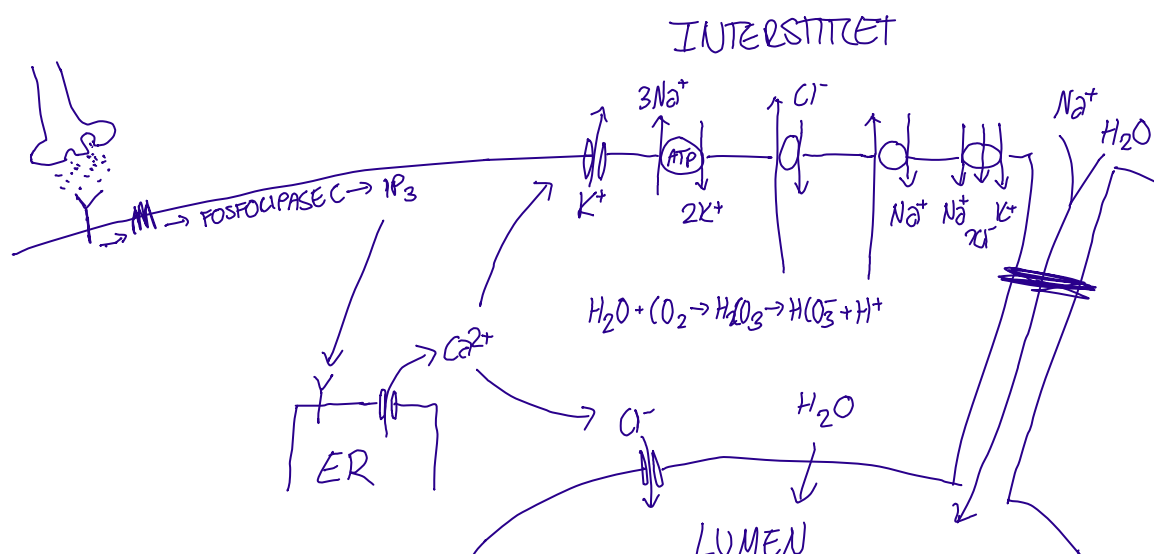 INTERSTITIET
3Na⁺
Cl⁻
Na⁺
H₂O
ATP
FOSFOLIPASE C → IP₃
K⁺
2K⁺
Na⁺
Na⁺
2Cl⁻
K⁺
H₂O + CO₂ → H₂CO₃ → HCO₃⁻ + H⁺
Ca²⁺
Cl⁻
H₂O
ER
LUMEN